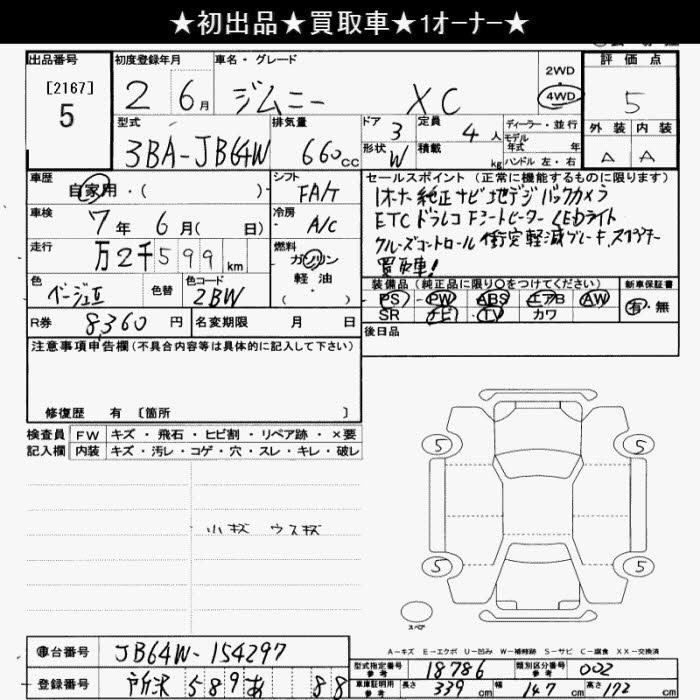 ★初出品★買取車★1オーナー★
出品番号
[2167]
5
初度登録年月
2 6月
車名・グレード
ジムニー XC
2WD
4WD
評価点
5
型式
3BA-JB64W
排気量
660cc
ドア 3
定員 4人
形状 W
積載 kg
ディーラー・並行
モデル年式 年
ハンドル 左・右
外装 内装
A A
車歴
自家用・( )
シフト
FA/T
車検
7年 6月( 日)
冷房
A/C
走行
万2千599km
燃料
ガソリン
軽油
( )
色
ベージュⅡ
色替
色コード
2BW
R券 8360円
名変期限 月 日
セールスポイント (正常に機能するものに限ります)
1オーナー 純正ナビ 地デジ バックカメラ
ETC ドラレコ Fシートヒーター LEDライト
クルーズコントロール 衝突軽減ブレーキ、スマートキー
買取車!
装備品 (純正品に限り〇をつけてください)
PS PW ABS エアB AW
SR ナビ TV カワ
新車保証書
有・無
後日品
注意事項申告欄(不具合内容等は具体的に記入して下さい)
修復歴 有 〔箇所 〕
検査員記入欄
FW キズ・飛石・ヒビ割・リペア跡・×要
内装 キズ・汚レ・コゲ・穴・スレ・キレ・破レ
小キズ ウスキズ
5 5
5 5
スペア
A−キズ E−エクボ U−凹み W−補修跡 S−サビ C−腐食 XX−交換済
車台番号
JB64W-154297
登録番号
所沢 589 あ 88
型式指定番号 参考 18786
類別区分番号 参考 002
車庫証明用 参考 長さ 339cm 幅 147cm 高さ 172cm